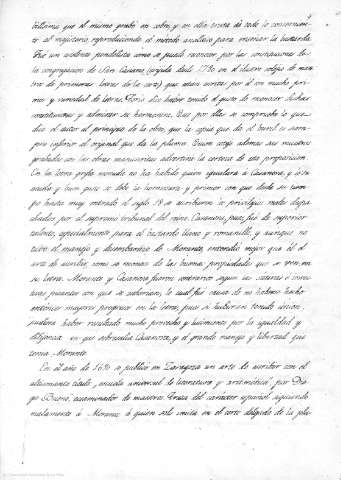 historia que el mismo grabó en cobre, y en ella trata de todo lo concerniente
al magisterio, reproduciendo el método analítico para enseñar la bastarda.
Fué un excelente pendolista como se puede conocer por las constituciones de
la congregacion de San Casiano (erigida desde 1780 en el ilustre colegio de maes
tros de primeras letras de la corte) que estan escritas por él con mucho pri
mor y variedad de letras. Torio dice haber tenido el gusto de reconocer dichas
constituciones y admirar su hermosura. Pues por ellas se comprueba lo que
dice el autor al principio de la obra, que la copia que da el buril es siem
pre inferior al original que da la pluma. Quien coteje algunas sus muestras
grabadas con las obras manuscritas advertirá la certeza de esta proposicion.
En la letra grifa menuda no ha habido quien igualara á Casanova, y es in
audita y bien puro se debe la hermosura y primor con que desde su tiem
po hasta muy entrado el siglo 18 se escribieron los privilegios reales despa
chados por el supremo tribunal del reino. Casanova, pues, fué de superior
talento, especialmente para el bastardo llano y romanillo, y aunque no
tenia el manejo y desembarazo de Morante, entendió mejor que él el
arte de escribir, como se reconoce de las buenas propiedades que se ven en
su letra. Morante y Casanova fueron contrarios segun las satiras é invec
tivas picantes con que se zaherian, lo cual fué causa de no haberse hecho
entonces mayores progresos en la letra, pues si hubieran tenido union,
pudiera haber resultado mucho provecho y lucimiento por la igualdad y
diligencia en que sobresalia Casanova, y el grande manejo y libertad que
tenia Morante.
En el año de 1690 se publicó en Zaragoza un arte de escribir con el
altisonante titulo, escuela universal de literatura y aritmética por Die
go Bueno, examinador de maestros. Trata del caracter español siguiendo
malamente á Morante á quien solo imita en el corte delgado de la plu